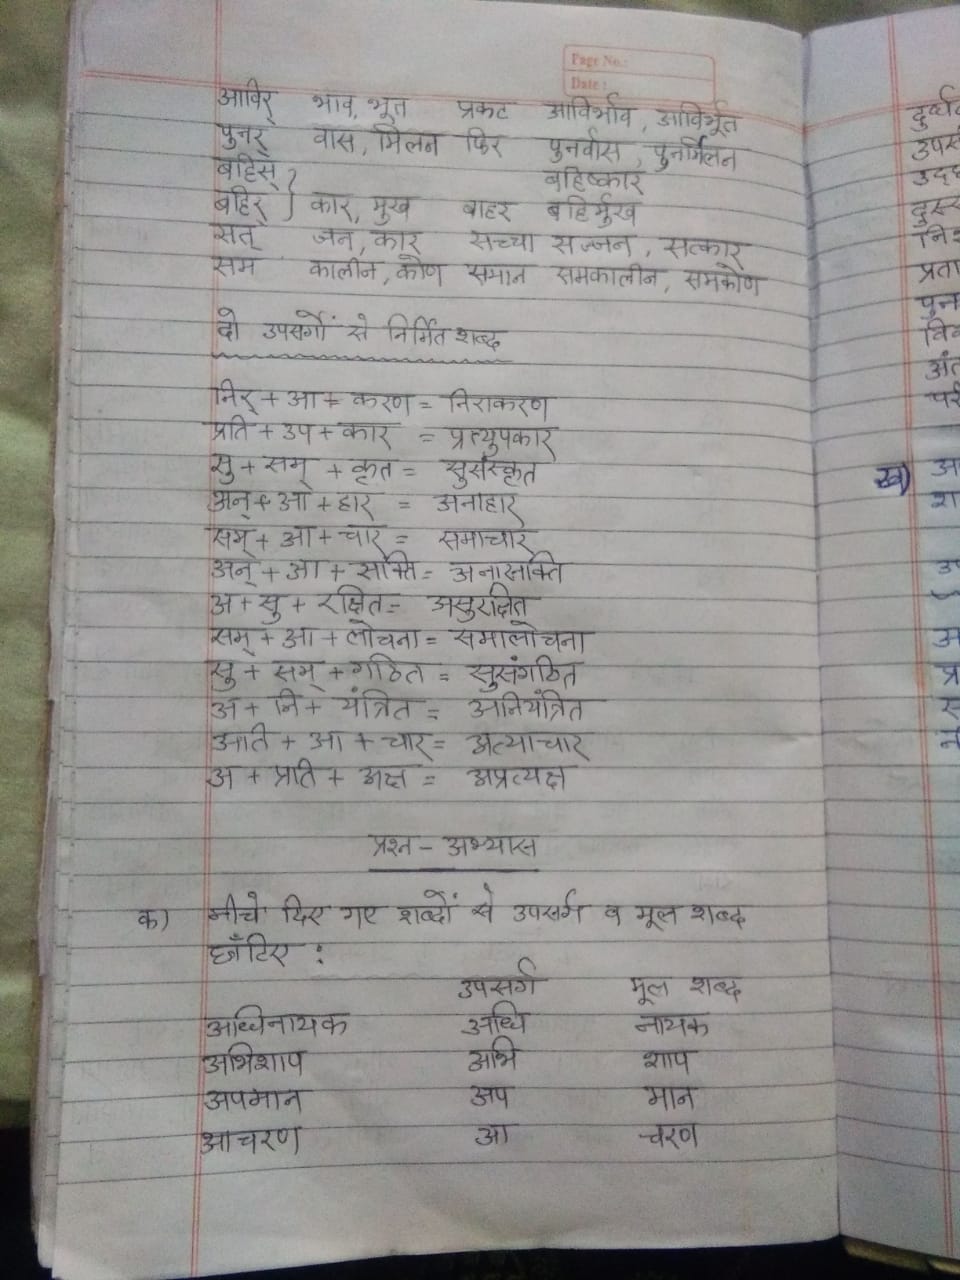 Page No.:
Date :
आविर् भाव, भूत प्रकट आविर्भाव, आविर्भूत
पुनर् वास, मिलन फिर पुनर्वास, पुनर्मिलन
बहिस् बहिष्कार
बहिर् कार, मुख बाहर बहिर्मुख
सत् जन, कार् सच्चा सज्जन, सत्कार
सम कालीन, कोण समान समकालीन, समकोण
दो उपसर्गों से निर्मित शब्द
निर् + आ + करण = निराकरण
प्रति + उप + कार = प्रत्युपकार
सु + सम् + कृत = सुसंस्कृत
अन् + आ + हार = अनाहार
सम् + आ + चार = समाचार
अन् + आ + सक्ति = अनासक्ति
अ + सु + रक्षित = असुरक्षित
सम् + आ + लोचना = समालोचना
सु + सम् + गठित = सुसंगठित
अ + नि + यंत्रित = अनियंत्रित
अति + आ + चार = अत्याचार
अ + प्रति + अक्ष = अप्रत्यक्ष
प्रश्न - अभ्यास
क) नीचे दिए गए शब्दों से उपसर्ग व मूल शब्द
छाँटिए :
उपसर्ग मूल शब्द
अधिनायक अधि नायक
अभिशाप अभि शाप
अपमान अप मान
आचरण आ चरण
ख)